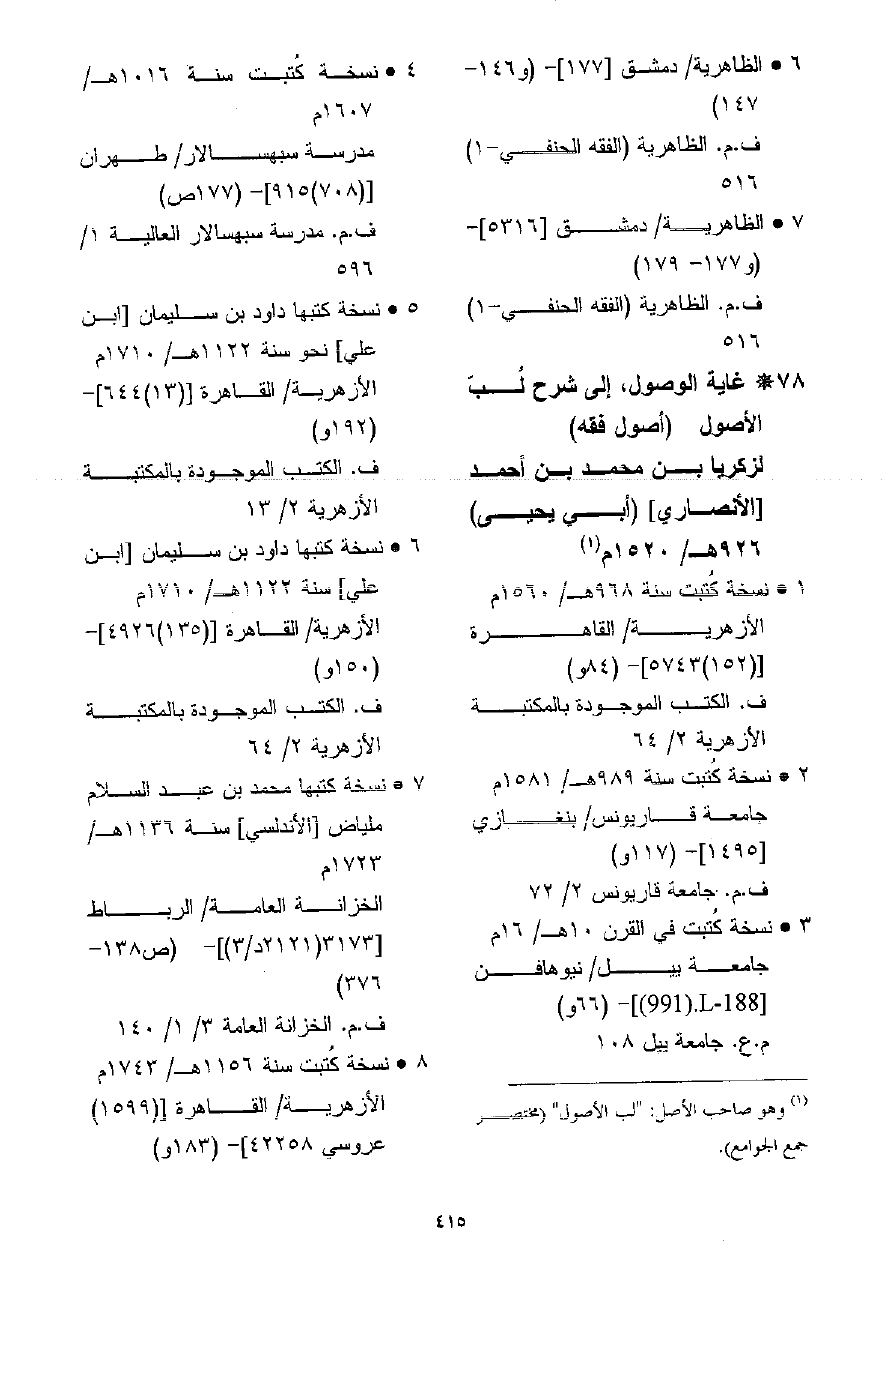 ٦ • الظاهرية/ دمشق [١٧٧]- (و١٤٦-
١٤٧)
ف.م. الظاهرية (الفقه الحنفي-١)
٥١٦
٧ • الظاهرية/ دمشق [٥٣١٦]-
(و١٧٧- ١٧٩)
ف.م. الظاهرية (الفقه الحنفي-١)
٥١٦
٧٨* غاية الوصول، إلى شرح لُبّ
الأصول (أصول فقه)
لزكريا بن محمد بن أحمد
[الأنصاري] (أبي يحيى)
٩٢٦هـ/ ١٥٢٠م(١)
١ • نسخة كُتبت سنة ٩٦٨هـ/ ١٥٦٠م
الأزهرية/ القاهرة
[(١٥٢)٥٧٤٣]- (٨٤و)
ف. الكتب الموجودة بالمكتبة
الأزهرية ٢/ ٦٤
٢ • نسخة كُتبت سنة ٩٨٩هـ/ ١٥٨١م
جامعة قاريونس/ بنغازي
[١٤٩٥]- (١١٧و)
ف.م. جامعة قاريونس ٢/ ٧٢
٣ • نسخة كُتبت في القرن ١٠هـ/ ١٦م
جامعة بيل/ نيوهافن
[L-188.(991)]- (٦٦و)
م.ع. جامعة ييل ١٠٨
(١) وهو صاحب الأصل: "لب الأصول" (مختصر
جمع الجوامع).
٤ • نسخة كُتبت سنة ١٠١٦هـ/
١٦٠٧م
مدرسة سبهسالار/ طهران
[(٧٠٨)٩١٥]- (١٧٧ص)
ف.م. مدرسة سبهسالار العالية ١/
٥٩٦
٥ • نسخة كتبها داود بن سليمان [ابن
علي] نحو سنة ١١٢٢هـ/ ١٧١٠م
الأزهرية/ القاهرة [(١٣)٦٤٤]-
(١٩٢و)
ف. الكتب الموجودة بالمكتبة
الأزهرية ٢/ ١٣
٦ • نسخة كتبها داود بن سليمان [ابن
علي] سنة ١١٢٢هـ/ ١٧١٠م
الأزهرية/ القاهرة [(١٣٥)٤٩٢٦]-
(١٥٠و)
ف. الكتب الموجودة بالمكتبة
الأزهرية ٢/ ٦٤
٧ • نسخة كتبها محمد بن عبد السلام
ملياض [الأندلسي] سنة ١١٣٦هـ/
١٧٢٣م
الخزانة العامة/ الرباط
[٣١٧٣(٢١٢١د/٣)]- (ص١٣٨-
٣٧٦)
ف.م. الخزانة العامة ٣/ ١/ ١٤٠
٨ • نسخة كُتبت سنة ١١٥٦هـ/ ١٧٤٣م
الأزهرية/ القاهرة [(١٥٩٩)
عروسي ٤٢٢٥٨]- (١٨٣و)
٤١٥